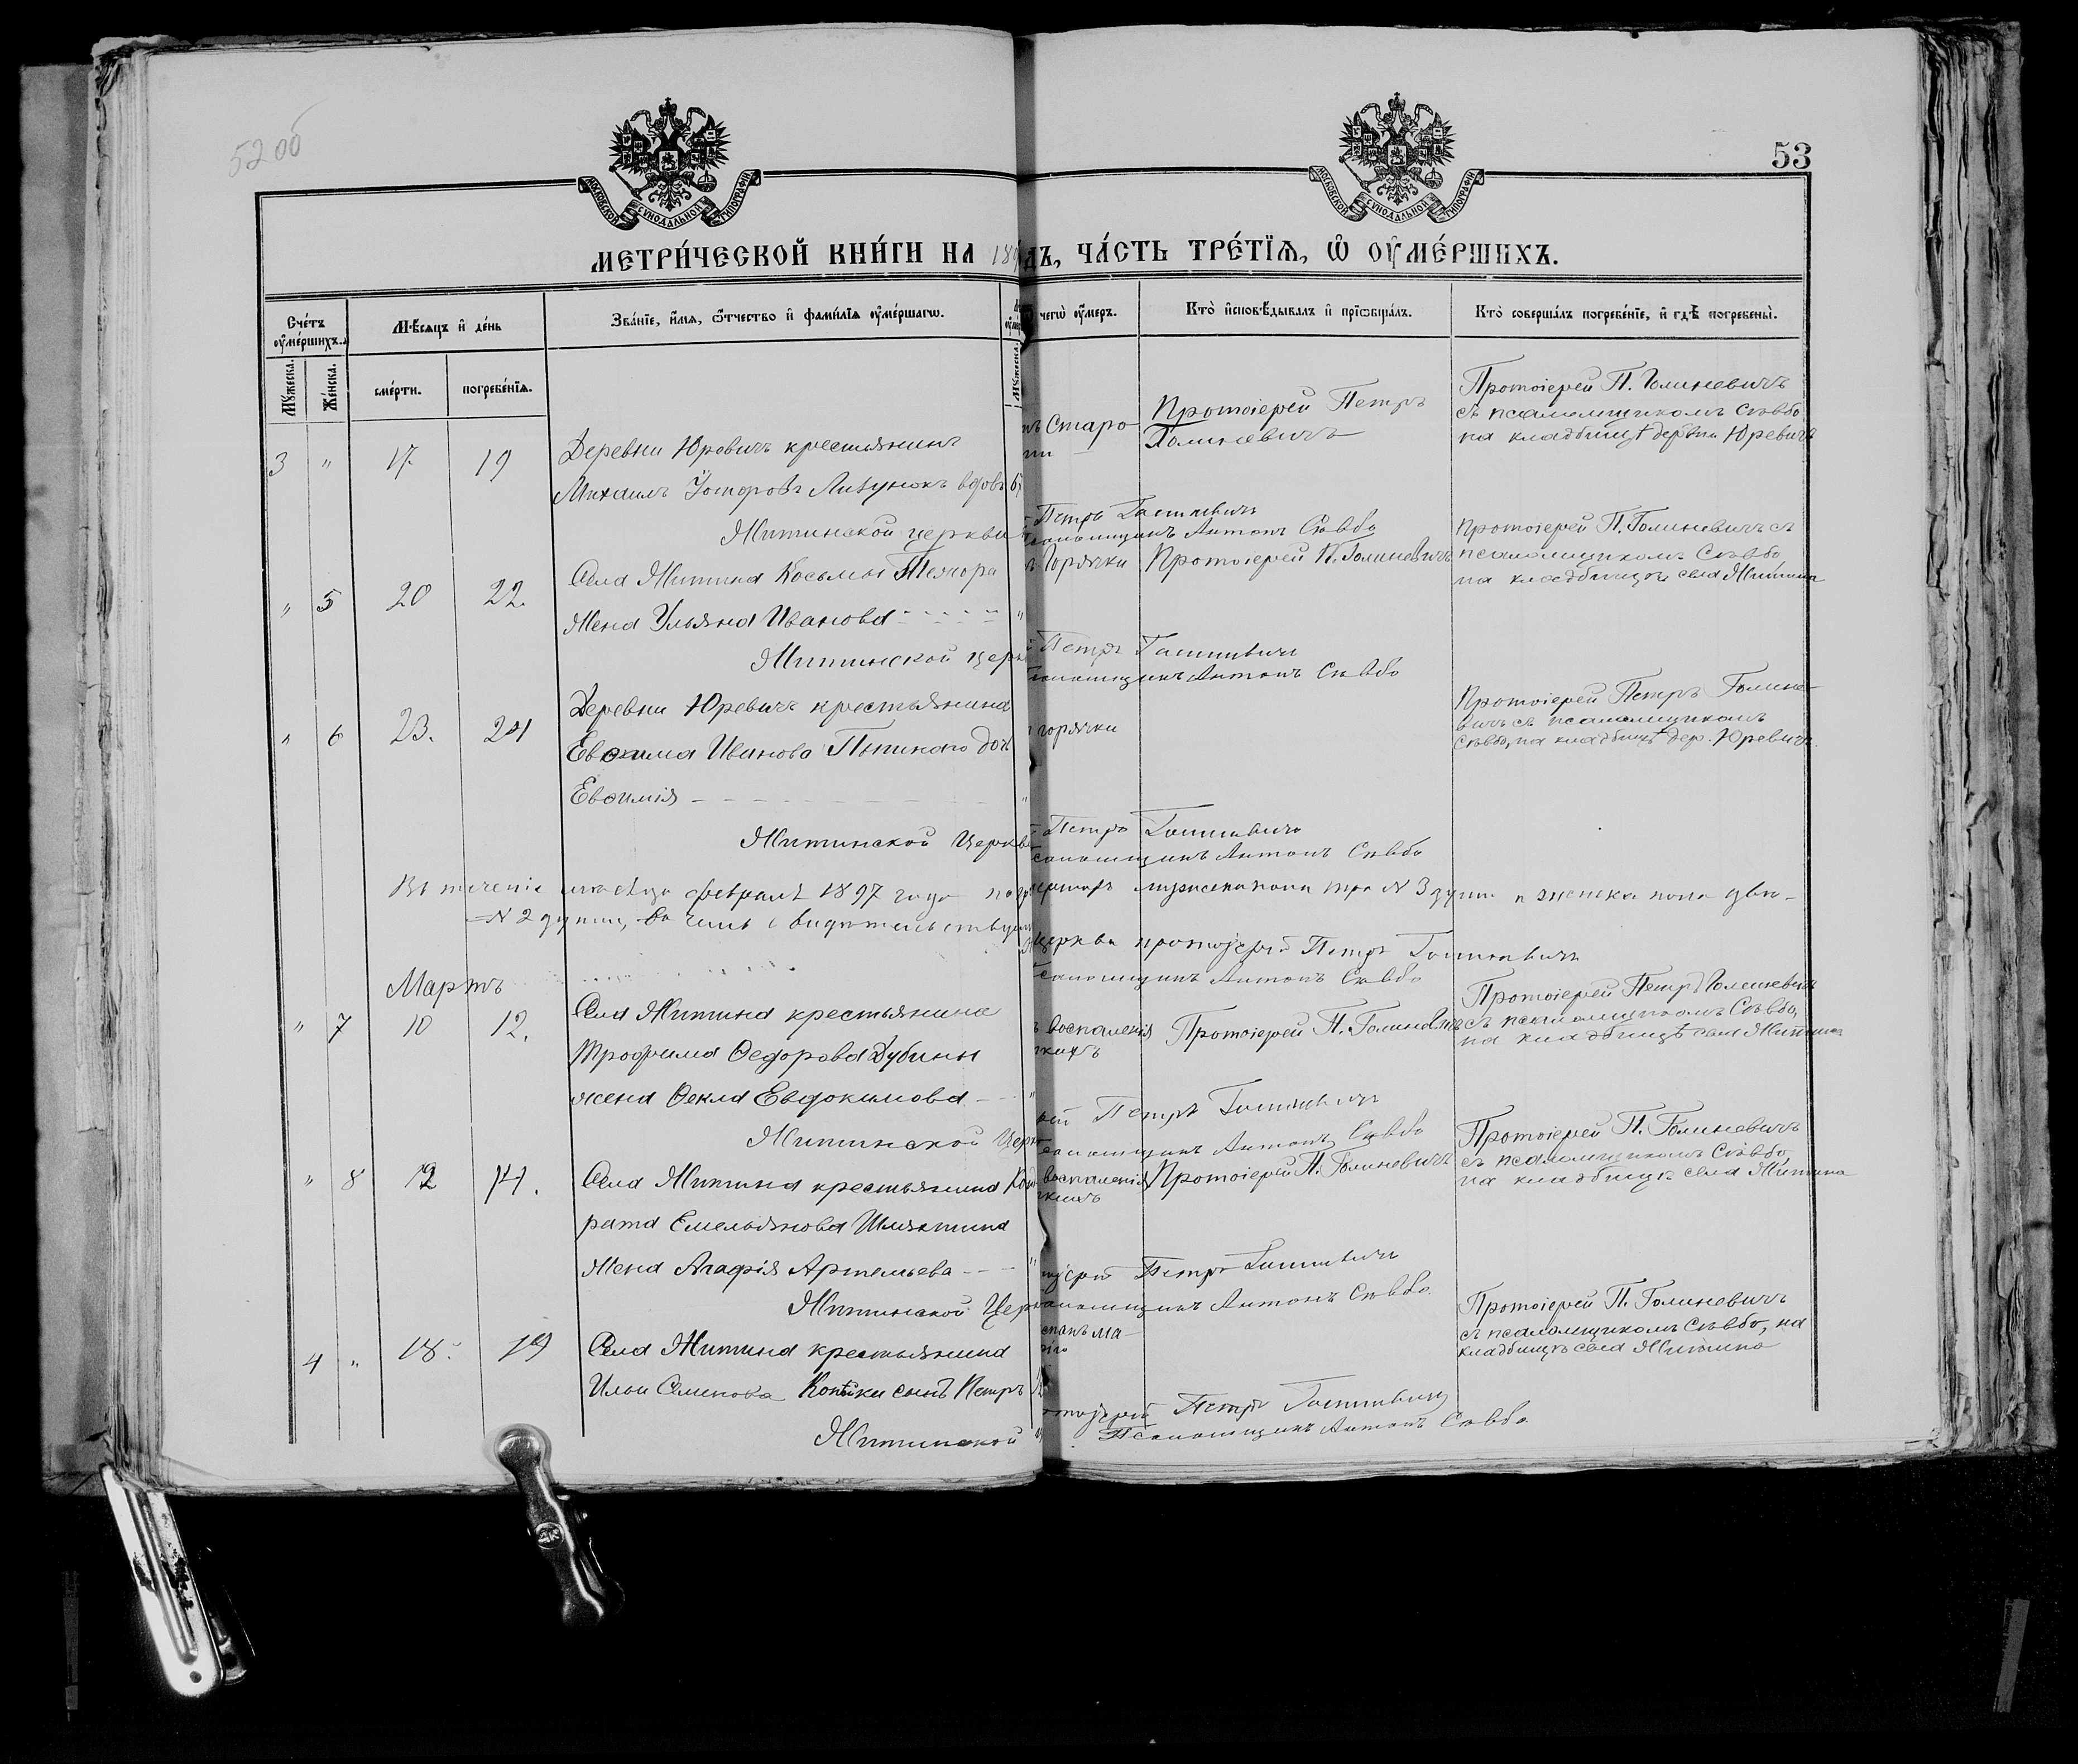 52 об
53
МОСКОВСКОЙ СѴНОДАЛЬНОЙ ТИПОГРАФІИ
МОСКОВСКОЙ СѴНОДАЛЬНОЙ ТИПОГРАФІИ
МЕТРИ́ЧЕСКОЙ КНИ́ГИ НА 18 ДЪ, ЧА́СТЬ ТРЕ́ТЇѦ, Ѡ҆ ОУ҆МЕ́РШИХЪ.
Сче́тъ оу҆ме́ршихъ.
Мѣ́сѧцъ и҆ де́нь
Зва́нїе, и҆́мѧ, ѻ҆́тчество и҆ фами́лїѧ оу҆ме́ршагѡ.
чегѡ̀ оу҆́меръ.
Кто̀ и҆сповѣ́дывалъ и҆ прїѡбща́лъ.
Кто̀ соверша́лъ погребе́нїе, и҆ гдѣ̀ погребены̀.
Мꙋ́жеска.
Же́нска.
сме́рти.
погребе́нїѧ.
Мꙋ́жеска.
3 " 17. 19
Деревни Юревичъ крестьянинъ
Михаилъ вдовъ
Старо
Протоіерей Петръ
Голиневичъ
Протоіерей П. Голиневичъ
съ псаломщикомъ Сѣвбо
на кладбищѣ деревни Юревичъ
Житинской церкви
Петръ Голиневичъ
Антонъ Сѣвбо
" 5 20 22.
Села Житина Косьмы
жена Ульяна Иванова
Горячки
Протоіерей П. Голиневичъ
Протоіерей П. Голиневичъ съ
псаломщикомъ Сѣвбо
на кладбищѣ села Житина
Житинской
Петръ Голиневичъ
Антонъ Сѣвбо
" 6 23. 24
Деревни Юревичъ крестьянина
Евѳима Иванова
Евѳимія
горячки
Протоіерей Петръ Голине-
вичъ съ псаломщикомъ
Сѣвбо, на кладбищѣ дер. Юревичъ
Житинской Церкви
Петръ Голиневичъ
Антонъ Сѣвбо
Въ теченіе мѣсяца февраля 1897 года мужеска пола три № 3 души и женска пола двѣ-
№ 2 души, въ чемъ
Церкви протоіерей Петръ Голиневичъ
Антонъ Сѣвбо
Мартъ
" 7 10 12.
Села Житина крестьянина
Трофима Ѳедорова Дубины
жена Ѳекла Евдокимова
воспаленія
Протоіерей П. Голиневичъ
Протоіерей Петръ Голиневичъ
съ псаломщикомъ Сѣвбо,
на кладбищѣ села Житина
Житинской
Петръ Голиневичъ
Антонъ Сѣвбо
" 8 12 14.
Села Житина крестьянина Код
рата Емельянова
жена Агафія Артемьева
воспаленія
Протоіерей П. Голиневичъ
Протоіерей П. Голиневичъ
съ псаломщикомъ Сѣвбо,
на кладбищѣ села Житина
Житинской
Петръ Голиневичъ
Антонъ Сѣвбо
4 " 18. 19
Села Житина крестьянина
Ильи Семенова сынъ Петръ
Протоіерей П. Голиневичъ
съ псаломщикомъ Сѣвбо, на
кладбищѣ села Житина
Житинской
Петръ Голиневичъ
Псаломщикъ Антонъ Сѣвбо